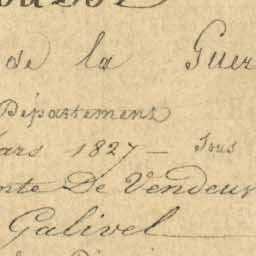 de la Guer
Département
ars 1827 — Sous
nte De Vendeuv
Galivel